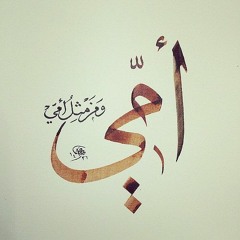 أمّي
ومن مثل أمي